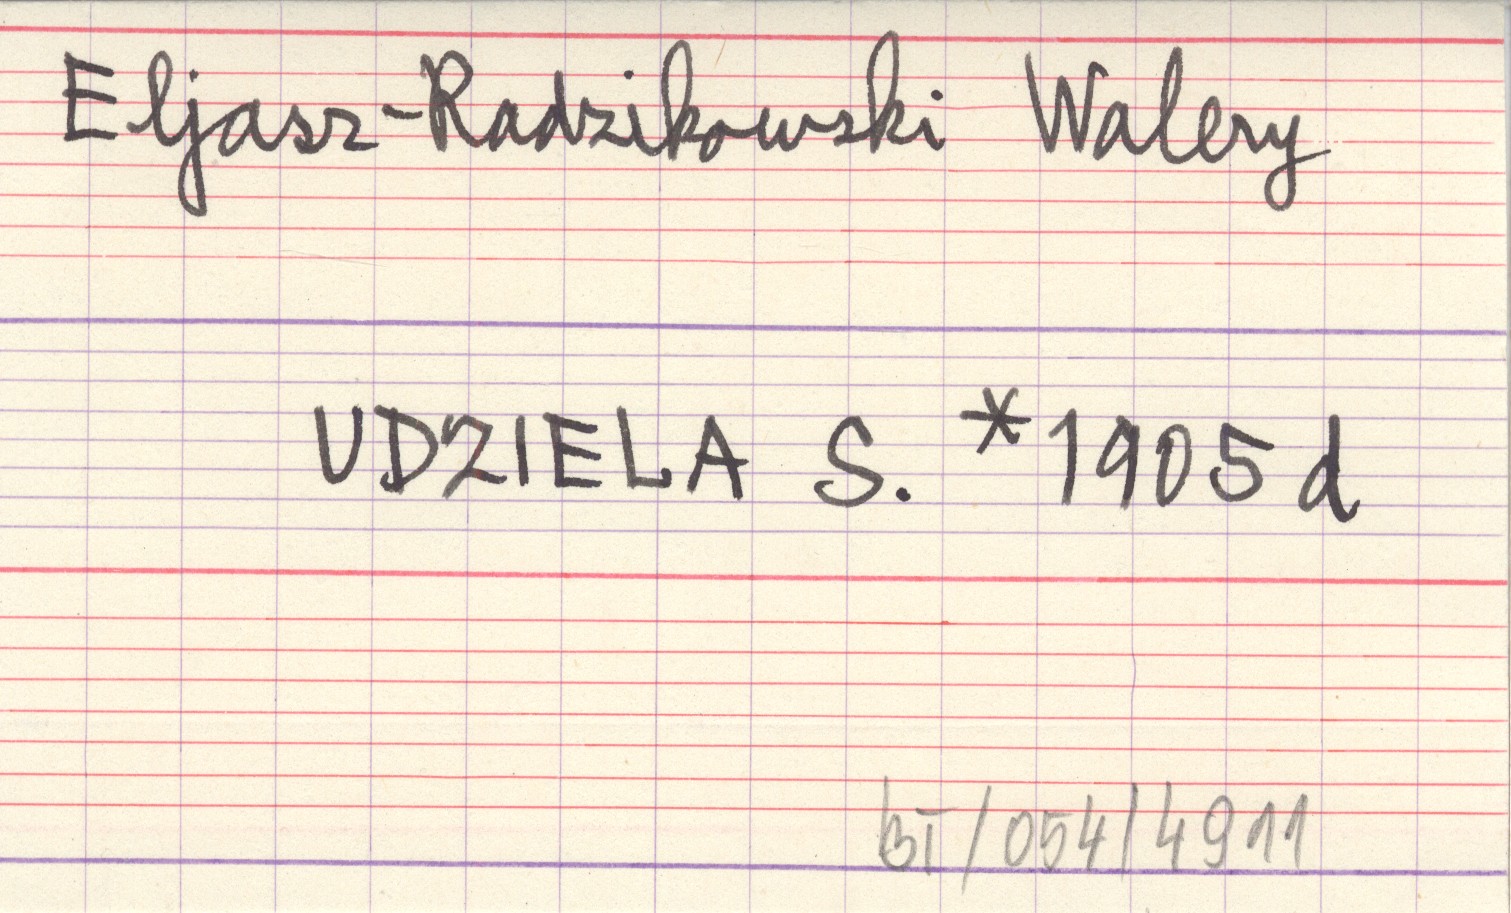 Eljasz-Radzikowski Walery
UDZIELA S. *1905d
BI/054/4911